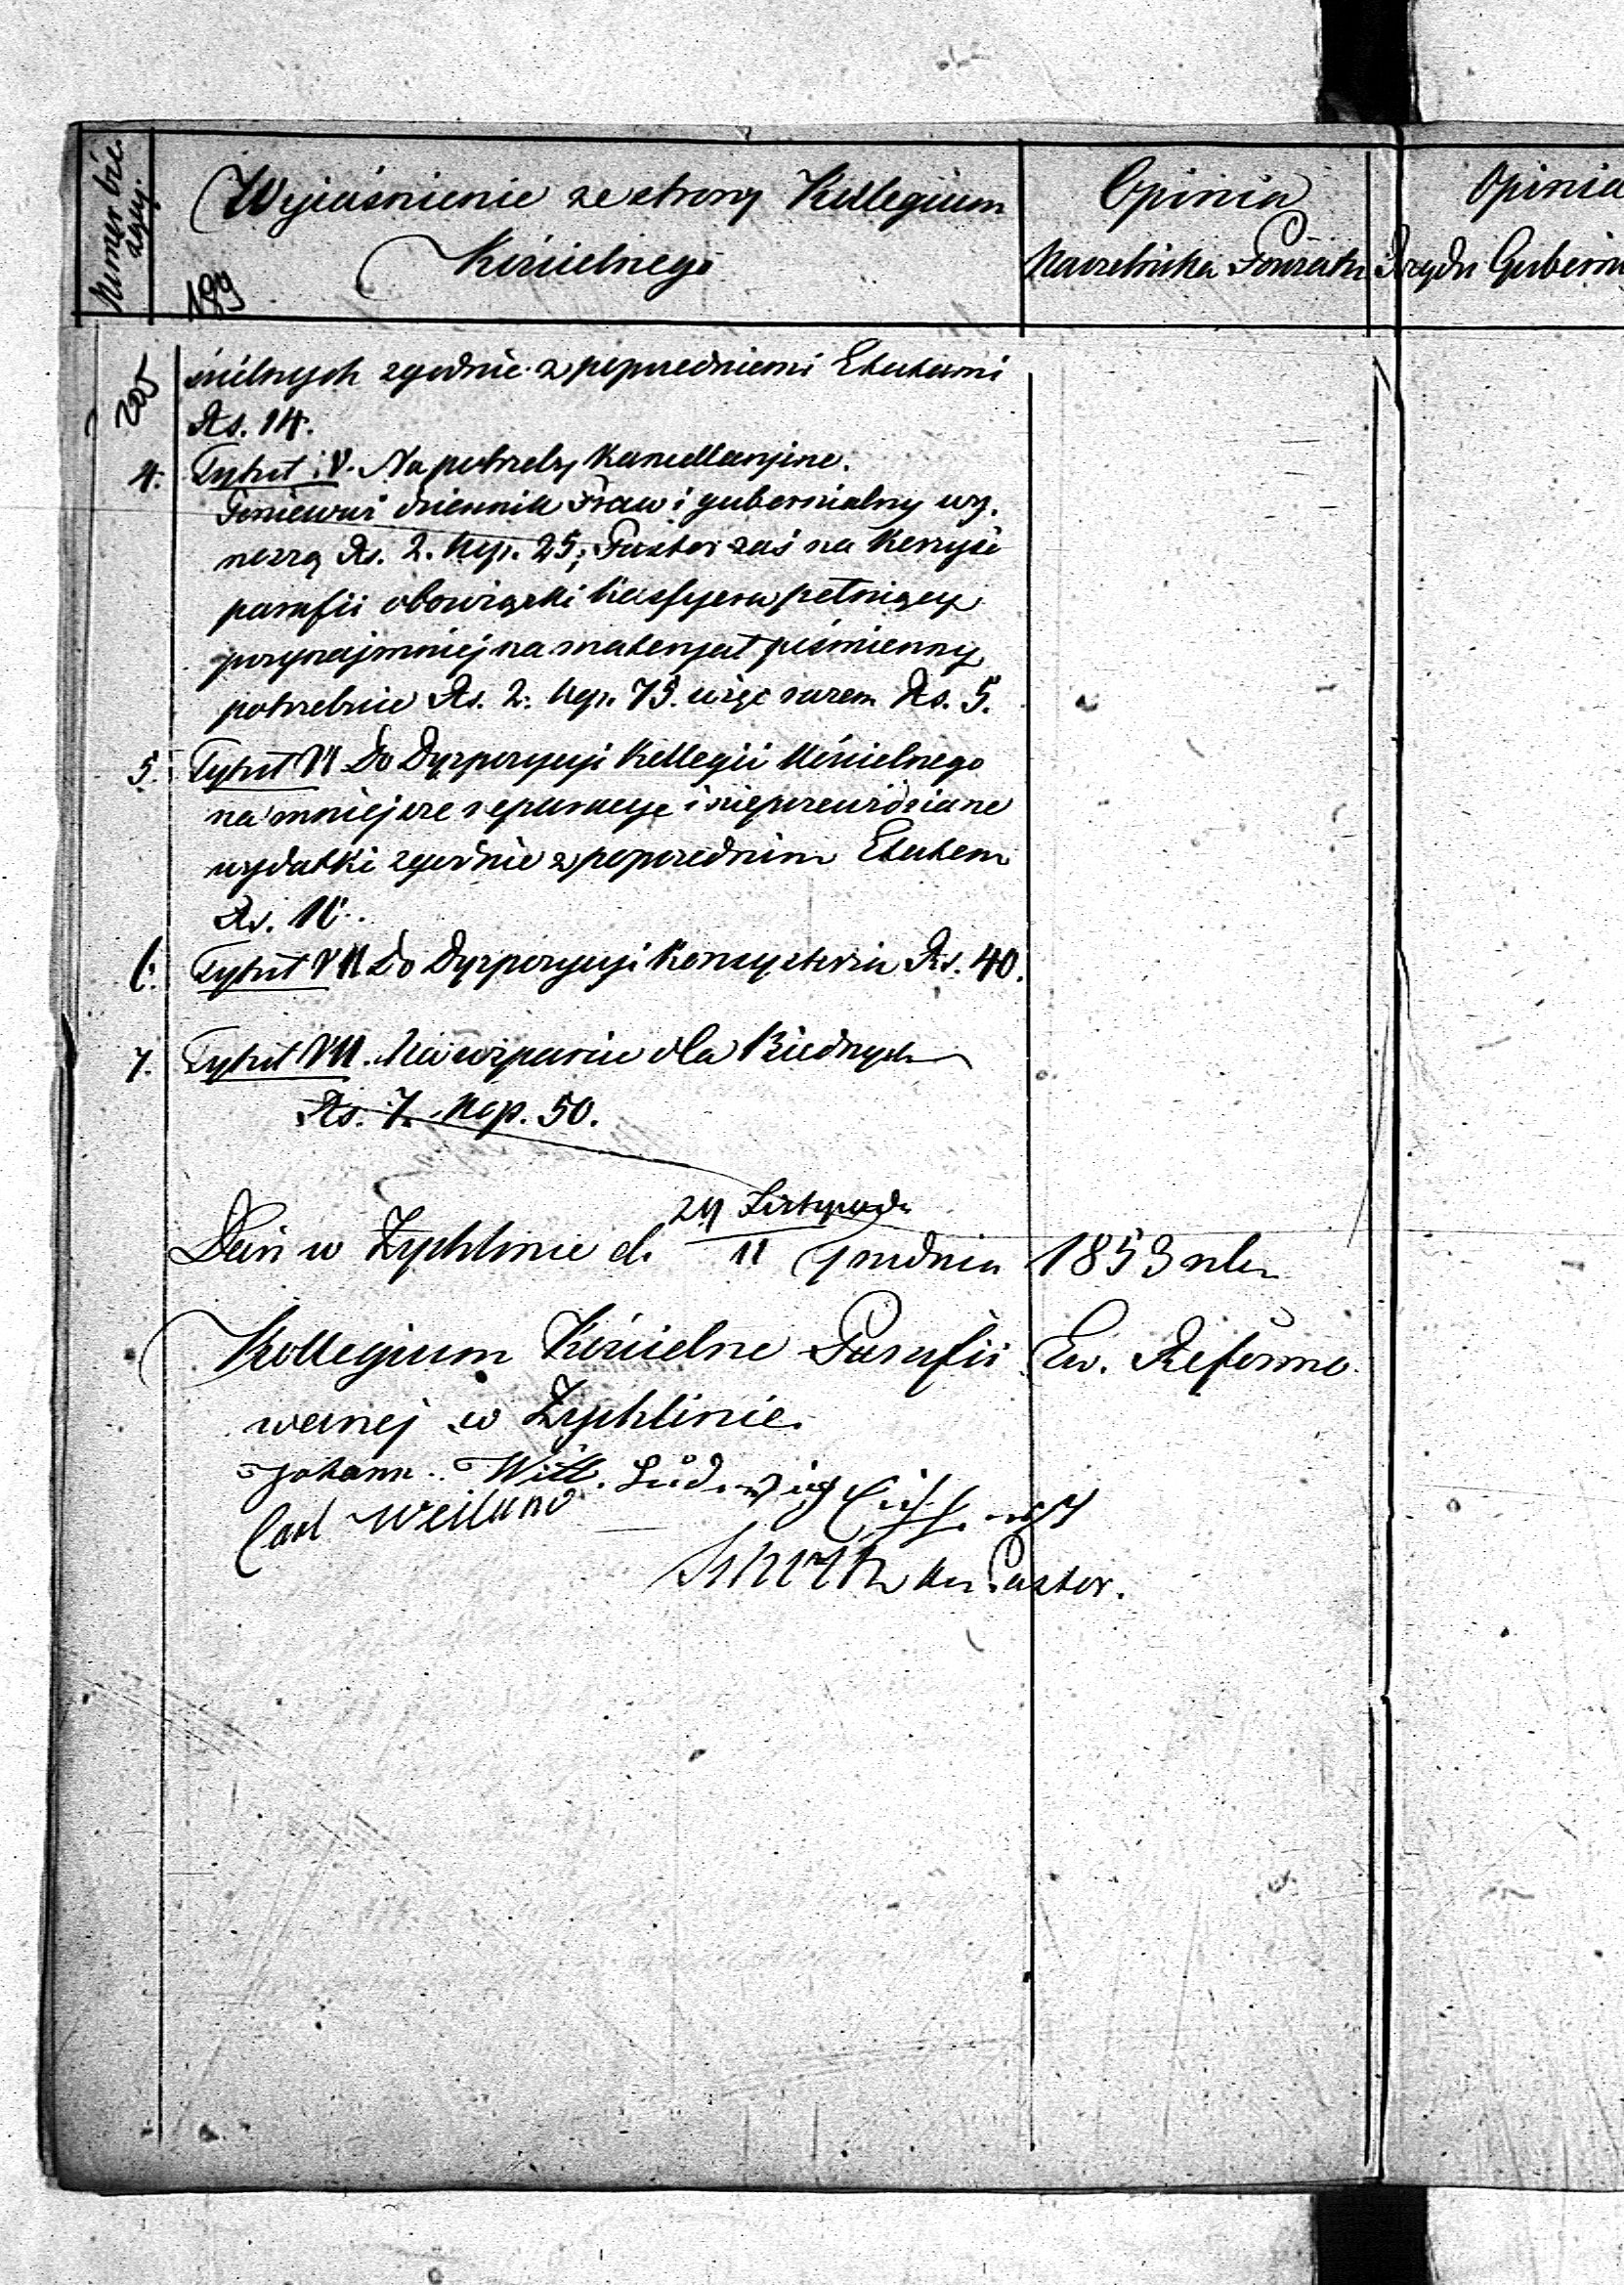 Numer bie-
żący.
Wyjaśnienie ze strony Kollegium
Kościelnego
Opinia
Naczelnika Powiatu
Opinia
Rządu Gubern
199
205
ścielnych zgodnie z poprzedniemi Etatami
Rs. 14.
4. Tytuł V. Na potrzeby Kancellaryjne.
Ponieważ dziennik Praw i gubernialny wy-
noszą Rs. 2. kop. 25; Pastor zaś na korzyść
parafii obowiązki kassyera pełniący
przynajmniej na materyał piśmienny
potrzebuie Rs. 2. kop. 75. więc razem Rs. 5.
5. Tytuł VI Do Dyspozycyi Kollegii Kościelnego
na mniejsze reparacye i nieprzewidziane
wydatki zgodnie z poprzednim Etatem
Rs. 10.
6. Tytuł VII Do Dyspozycyi Konsystorza Rs. 40.
7. Tytuł VIII. Na wsparcie dla Biednych
Rs. 7. kop. 50.
29 Listopada
Dań w Żychlinie d. 11 Grudnia 1853 rku
Kollegium Kościelne Parafii Ew. Reformo-
wanej w Żychlinie.
Johann Will. Ludwig
Carl Weiland
Pastor.